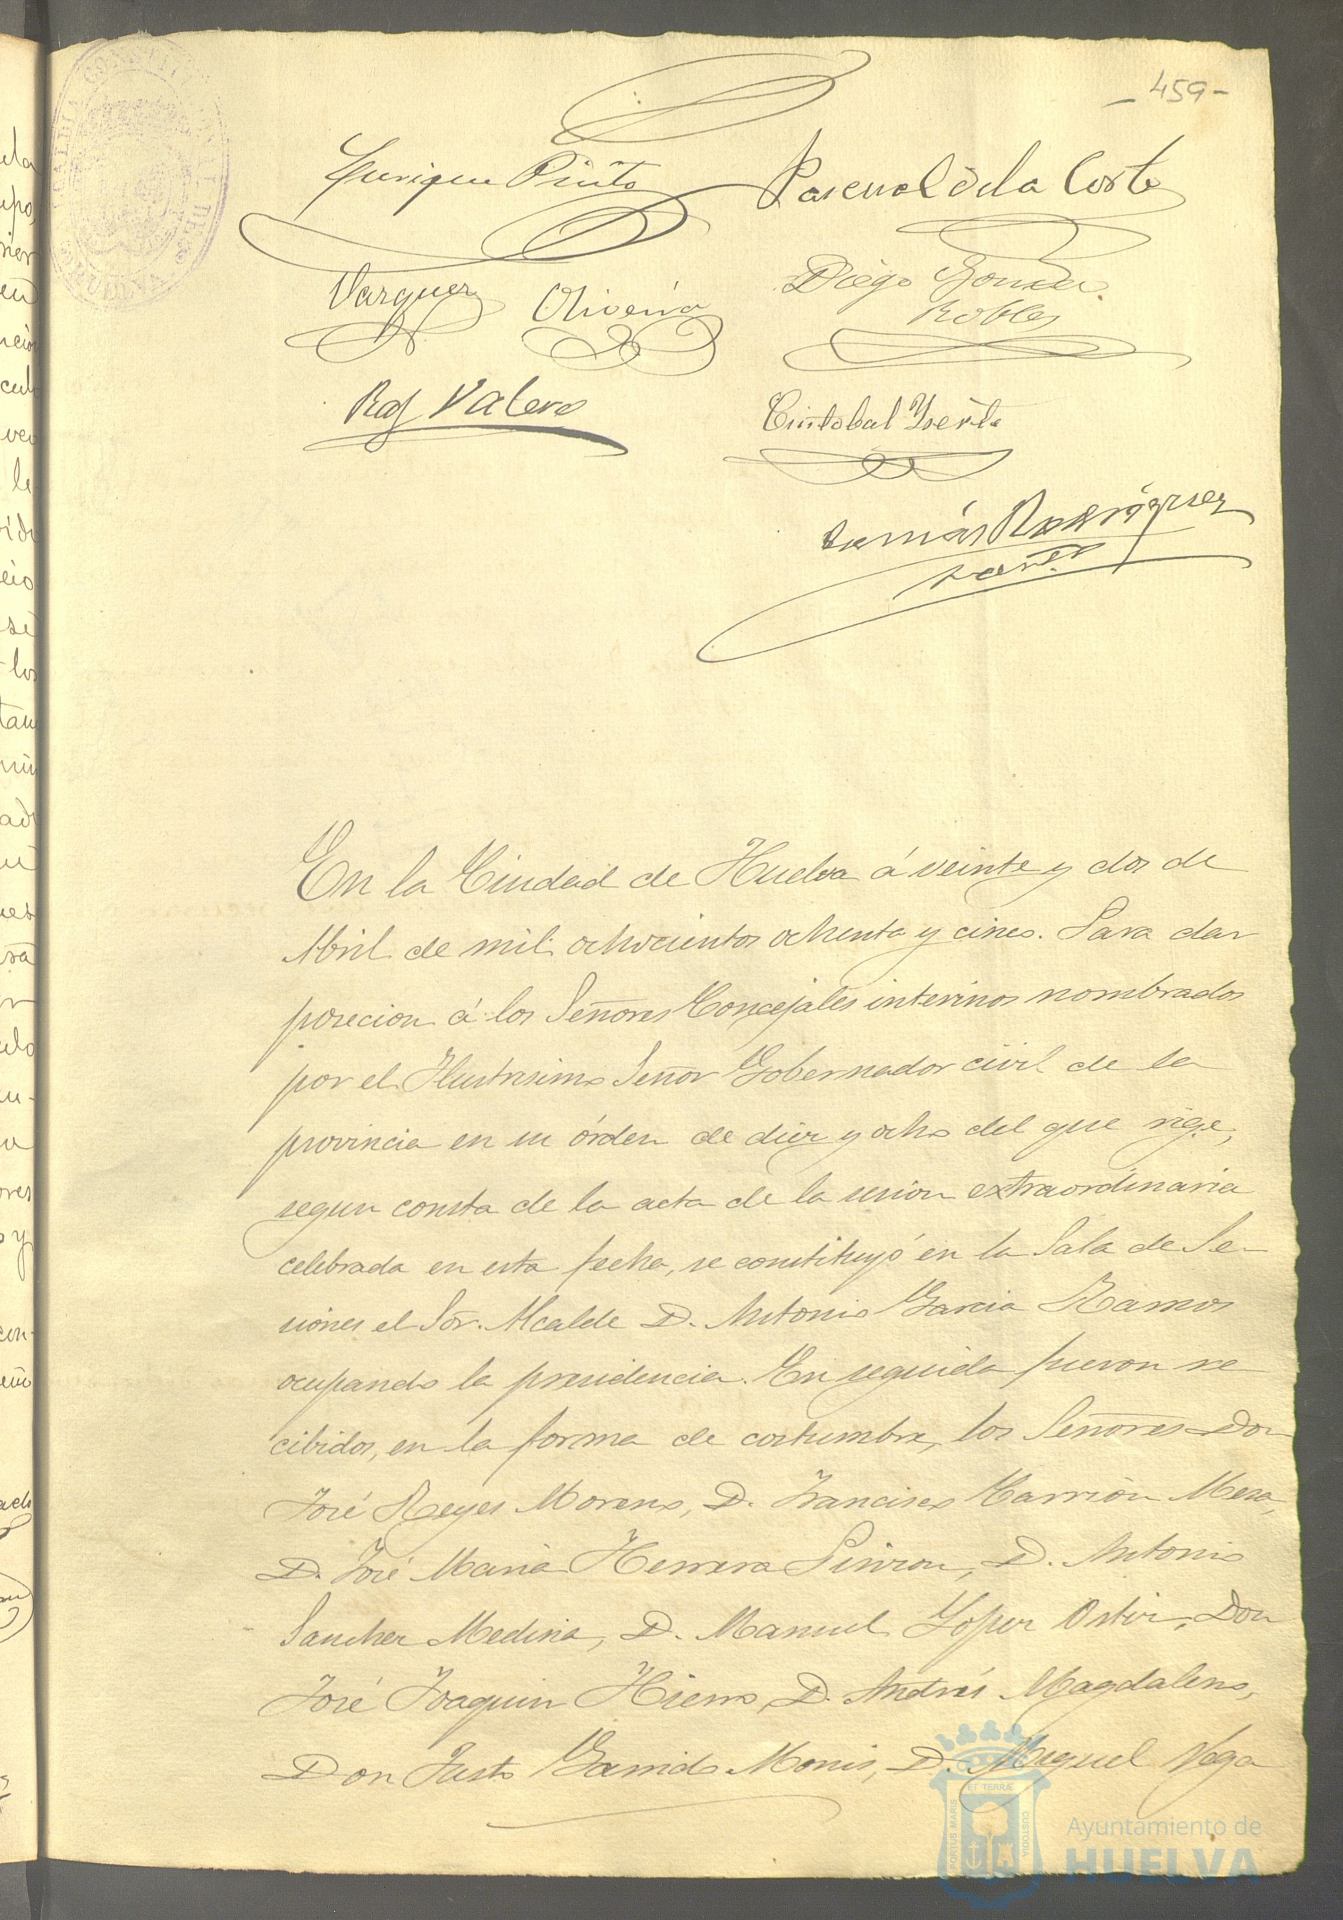 -459-
ALCALDIA CONSTITUCIONAL DE HUELVA
Enrique Pinto
Pascual de la Corte
Vazquez
Oliveira
Diego Gomez
Robles
Raf Valero
Cristobal
Tomás Rodriguez
En la Ciudad de Huelva á veinte y dos de
Abril de mil ochocientos ochenta y cinco. Para dar
posecion á los Señores Concejales interinos nombrados
por el Ilustrisimo Señor Gobernador civil de la
provincia en su órden de diez y ocho del que rige,
segun consta de la acta de la sesion extraordinaria
celebrada en esta fecha, se constituyó en la Sala de Se-
siones el Sor. Alcalde D. Antonio Garcia Ramos
ocupando la presidencia. En seguida fueron re
cibidos, en la forma de costumbre, los Señores Don
José Reyes Moreno, D. Francisco Carrión Mesa,
D. José Maria Herrera Pinzon, D. Antonio
Sanchez Medina, D. Manuel Lopez Ostiz, Don
José Joaquin Hierro, D. Andrés Magdaleno,
Don Justo Garrido Monis, D. Miguel Vega
ET TERRÆ
PORTUS MARIS
CUSTODIA
Ayuntamiento de
HUELVA